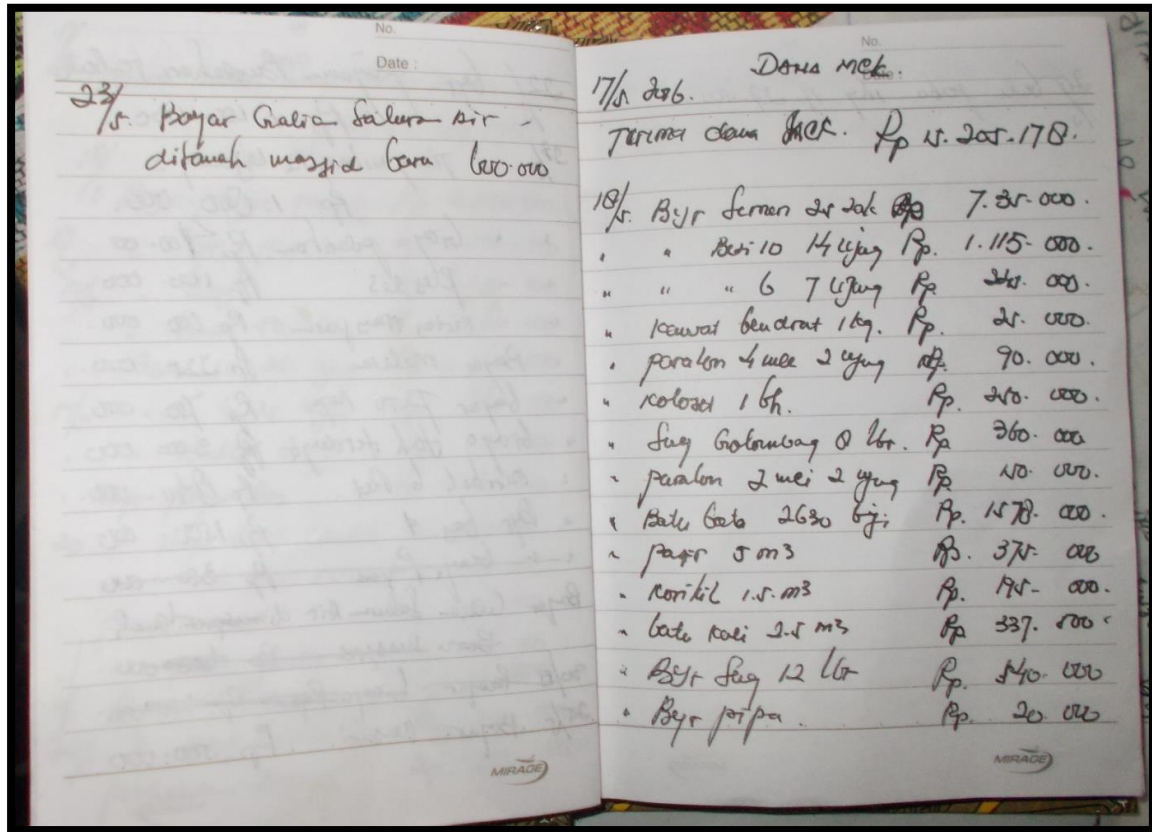 No.
Date :
23/5. Bayar Galian Saluran Air
ditanah massjid baru 600.000
MIRAGE
No.
Date
DANA MCK.
17/5. 2016.
Terima dana MCK. Rp 15.205.178.
18/5. Byr Semen 25 zak Rp 7.35.000.
" " Besi 10 14 ujung Rp. 1.115.000.
" " " 6 7 ujung Rp 000.
" Kawat bendrat 1 kg. Rp. 25.000.
" paralon 4 mei 2 ujung Rp. 90.000.
" Kolosed 1 bh. Rp. 250.000.
" Seng Golombag 8 lbr. Rp 360.000
" paralon 2 mei 2 ujung Rp 50.000.
" Batu bata 2630 biji Rp. 1578.000.
" pasir 5 m3 Rp. 375.000
" Korikil 1.5. m3 Rp. 195.000.
" batu kali 2.5 m3 Rp 337.500.
" Byr Seng 12 lbr Rp. 540.000
" Byr pipa. Rp. 20.000
MIRAGE